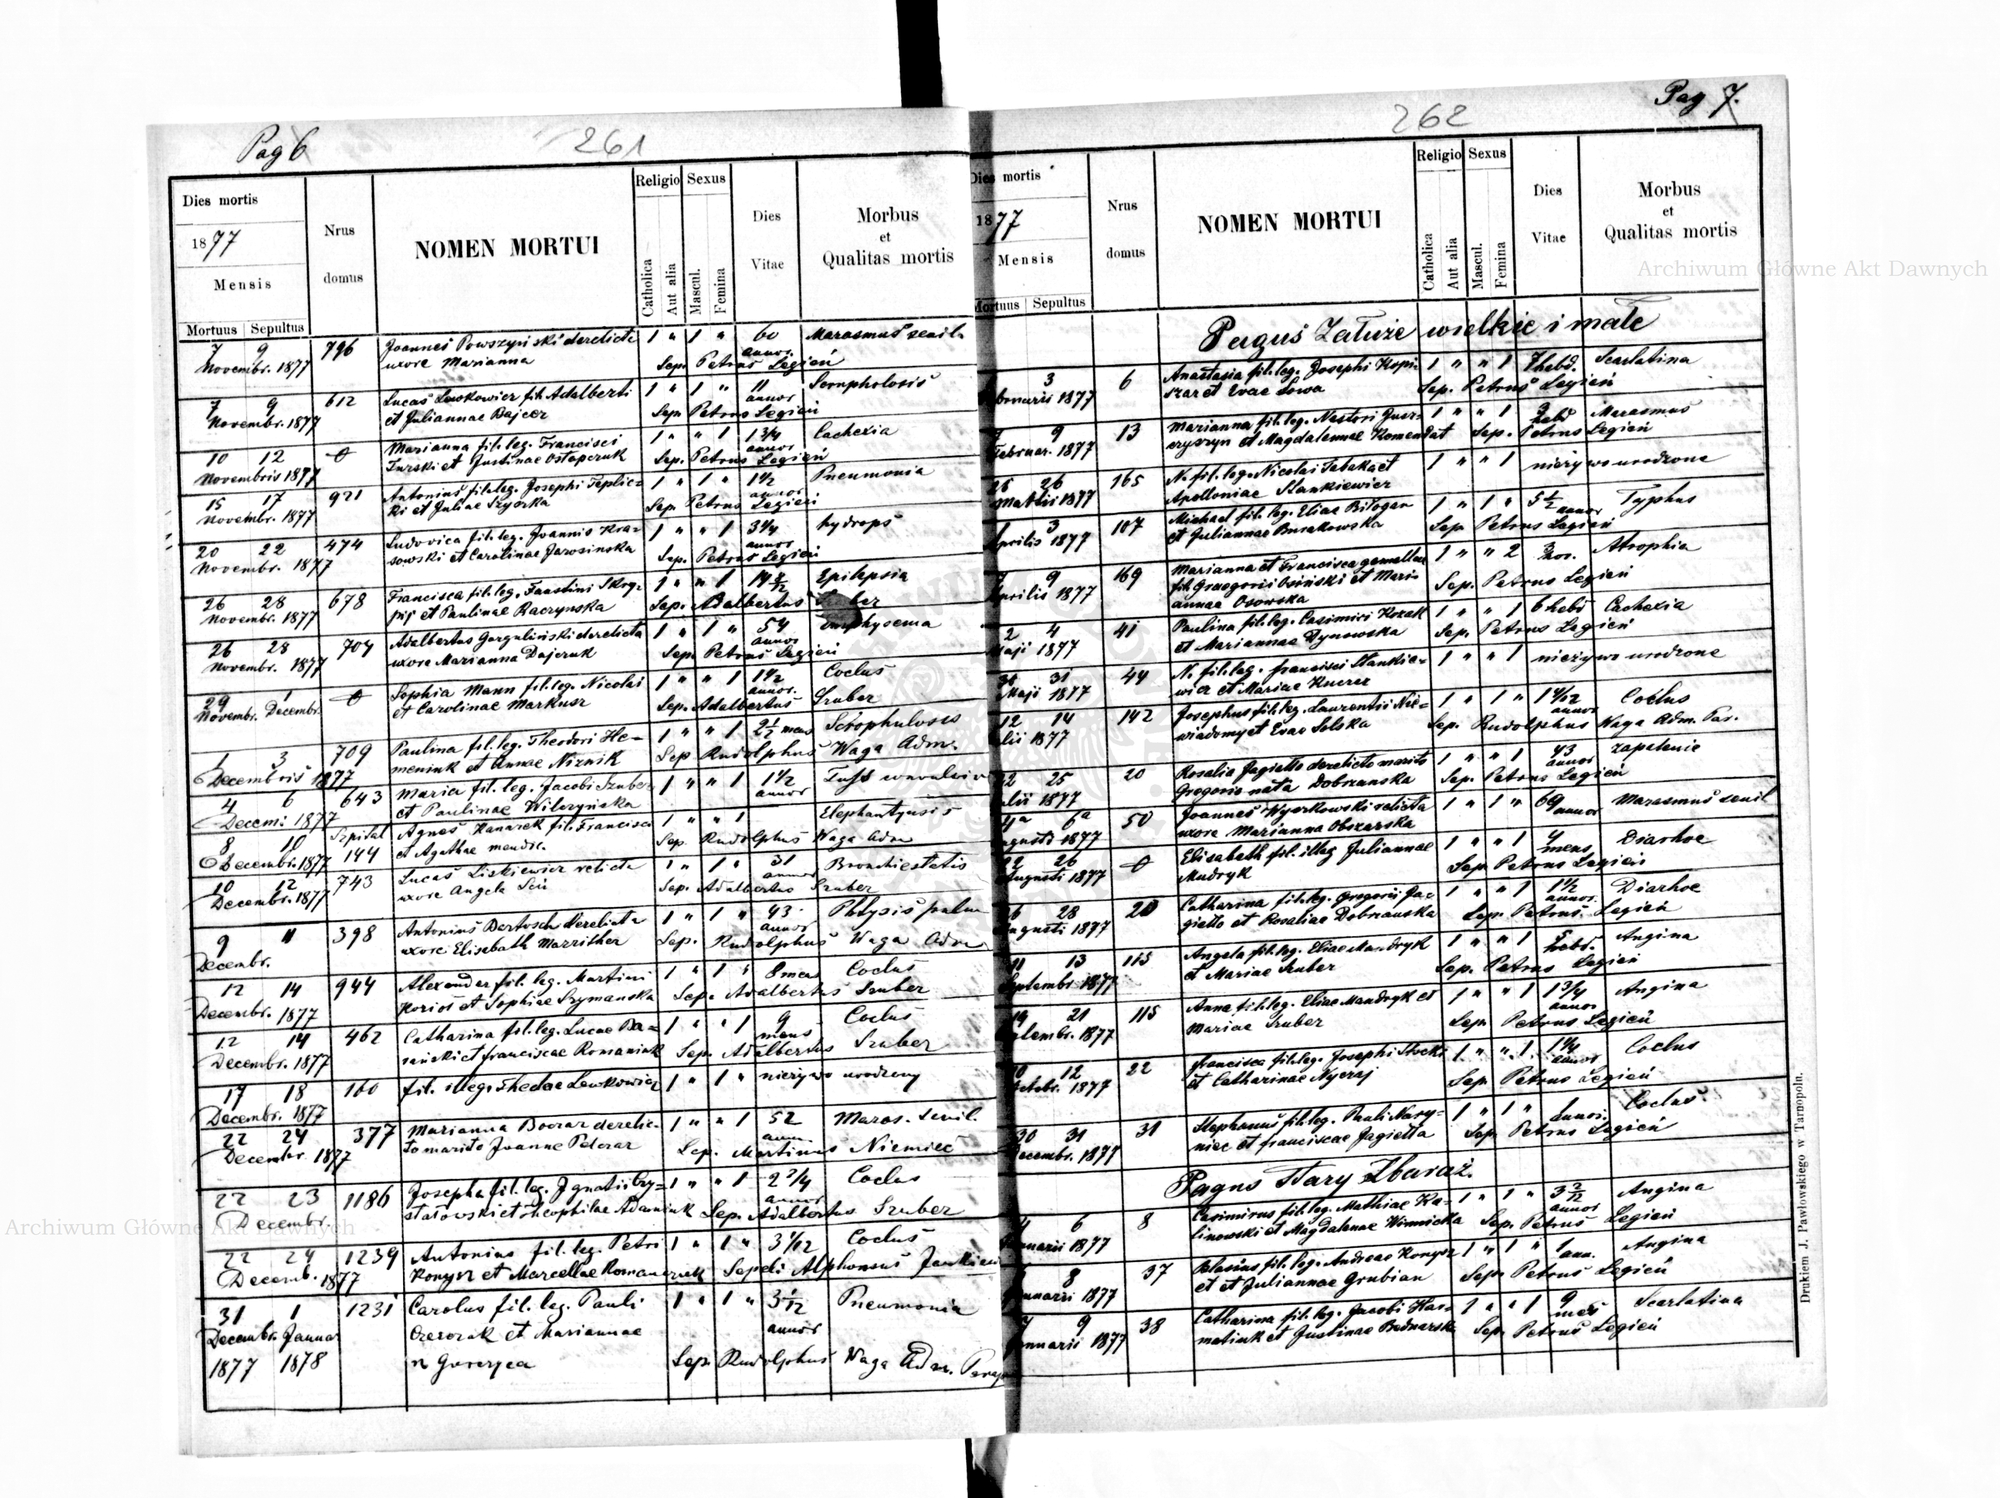 Pag 6
261
Dies mortis
1877
Mensis
Mortuus Sepultus
Nrus domus
NOMEN MORTUI
Religio
Catholica
Aut alia
Sexus
Mascul.
Femina
Dies Vitae
Morbus et Qualitas mortis
7 9 796 Joannes Powszyński derelicta 1 " 1 " 60 Marasmus senil.
Novembr. 1877 uxore Marianna annor. Sep. Petrus Legień
7 9 612 Lucas Lewkowicz fil. Adalberti 1 " 1 " 11 annor
Novembr. 1877 et Juliannae Bajcer Sep. Petrus Legień
10 12 Marianna fil. leg. Francisci 1 " " 1 1 3/4 annor Cachexia
Novembris 1877 Turski et Justinae Ostapczuk Sep. Petrus Legień
15 17 921 Antonius fil. leg. Josephi Teplic- 1 " 1 " 1 1/2 annor Pneumonia
Novembr. 1877 ki et Juliae Sep. Petrus Legień
20 22 474 Ludovica fil. leg. Joannis Kra- 1 " " 1 3 1/4 annor hydrops
Novembr. 1877 sowski et Carolinae Jarosinska Sep. Petrus Legień
26 28 678 Francisca fil. leg. Faustini 1 " " 1 Epilepsia
Novembr. 1877 et Paulinae Raczynska Sep. Adalbertus
26 28 704 Adalbertus Gorguliński derelicta 1 " 1 " 54 annor
Novembr. 1877 uxore Marianna Dajczuk Sep. Petrus Legień
29 1 Sophia Mann fil. leg. Nicolai 1 " " 1 1 1/2 annor. Coclus
Novembr. Decembr. et Carolinae Markusz Sep. Adalbertus Szuber
1 3 709 Paulina fil. leg. Theodori He- 1 " " 1 2 1/2 mens Scrophulosis
Decembris 1877 meniuk et Annae Niznik Sep. Rudolphus Waga Adm.
4 6 643 Maria fil. leg. Jacobi Szuber 1 " " 1 1 1/2 annor
Decem. 1877 et Paulinae Wilczyńska
8 10 Szpital 144 Agnes Kanarek fil. Francisci 1 " " 1
Decembr. 1877 et Agathae mendic. Sep. Rudolphus Waga Adm
10 12 743 Lucas Liskiewicz relicta 1 " 1 " 31 annor
Decembr. 1877 uxore Angela Sep. Adalbertus Szuber
9 11 398 Antonius Bertosch derelicta 1 " 1 " 43 annor Phtysis pulm
Decembr. uxore Elisabeth Sep. Rudolphus Waga Adm
12 14 944 Alexander fil. leg. Martini 1 " 1 " 8 mens Coclus
Decembr. 1877 et Sophiae Szymanska Sep. Adalbertus Szuber
12 14 462 Catharina fil. leg. Lucae 1 " " 1 9 mens Coclus
Decembr. 1877 et Franciscae Romaniuk Sep. Adalbertus Szuber
17 18 160 fil. illeg. Theclae Lewkowicz 1 " 1 " nieżywo urodzony
Decembr. 1877
22 24 377 Marianna derelic- 1 " " 1 52 ann. Maras. senil.
Decembr. 1877 to marito Joanne Sep. Martinus Niemiec
22 23 1186 Josepha fil. leg. Ignatii 1 " " 1 2 2/4 annor Coclus
Decembr. et Theophilae Adamiuk Sep. Adalbertus Szuber
22 24 1239 Antonius fil. leg. Petri 1 " 1 " 3 1/12 Coclus
Decemb. 1877 Konysz et Marcellae Sepeli Alphonsus
31 1 1231 Carolus fil. leg. Pauli 1 " 1 " 3 1/12 annor Pneumonia
Decembr Januar et Mariannae
1877 1878 Sep. Rudolphus Waga Adm.
Pag 7.
262
Dies mortis
1877
Mensis
Mortuus Sepultus
Nrus domus
NOMEN MORTUI
Religio
Catholica
Aut alia
Sexus
Mascul.
Femina
Dies Vitae
Morbus et Qualitas mortis
Pagus Załuże wielkie i małe
3 6 Anastasia fil. leg. Josephi Kopi- 1 " " 1 7 hebd. Scarlatina
1877 et Evae Sowa Sep. Petrus Legień
9 13 Marianna fil. leg. Nestori 1 " " 1 hebd Marasmus
Februar. 1877 et Magdalennae Komendat Sep. Petrus Legień
25 26 165 N. fil. leg. Nicolai Tabaka et 1 " " 1 nieżywo urodzone
Martii 1877 Apolloniae Stankiewicz
1 3 107 Michael fil. leg. Eliae Biłogan 1 " 1 " 5 1/2 annor Typhus
Aprilis 1877 et Juliannae Burakowska Sep. Petrus Legień
9 169 Marianna et Francisca gemellae 1 " " 2 Atrophia
Aprilis 1877 fil. Graegorii Osiński et Mari-
annae Osowska Sep. Petrus Legień
2 4 41 Paulina fil. leg. Casimiri Kozak 1 " " 1 6 hebd Cachexia
Maji 1877 et Mariannae Dynowska Sep. Petrus Legień
31 44 N. fil. leg. Francisci Stankie- 1 " " 1 nieżywo urodzone
Maji 1877 wicz et Mariae Kucrer
12 14 142 Josephus fil. leg. Laurentii Nie- 1 " 1 " annor Coclus
1877 wiadomy et Evae Solska Sep. Rudolphus Waga Adm. Par.
22 25 20 Rosalia Jagiełło derelicto marito 1 " " 1 43 annor zapalenie
1877 Gregorio nata Dobrzanska Sep. Petrus Legień
50 Joannes Wyszkowski relicta 1 " 1 " 69 annor Marasmus senil
1877 uxore Marianna Obszarska
22 26 Elisabeth fil. illeg Juliannae 1 " " 1 4 mens Diarhoe
Augusti 1877 Mudryk Sep. Petrus Legień
26 28 20 Catharina fil. leg. Gregorii Ja- 1 " " 1 1 1/2 annor Diarhoe
Augusti 1877 giełło et Rosaliae Dobrzanska Sep. Petrus Legień
11 13 115 Angela fil. leg. Eliae Mandryk 1 " " 1 5 hebd. Angina
Septembr. 1877 et Mariae Szuber Sep. Petrus Legień
19 21 115 Anna fil. leg. Eliae Mandryk et 1 " " 1 1 3/4 annor Angina
Septembr. 1877 Mariae Szuber Sep. Petrus Legień
10 12 22 Francisca fil. leg. Josephi 1 " " 1 1 1/4 annor Coclus
Octobr. 1877 et Catharinae Sep. Petrus Legień
30 31 31 Stephanus fil. leg. Pauli Mary- 1 " 1 " annor. Coclus
Decembr. 1877 niec et Franciscae Jagiełła Sep. Petrus Legień
Pagus Stary Zbaraż.
4 6 8 Casimirus fil. leg. Mathiae Ka- 1 " 1 " 3 2/12 annor Angina
Januarii 1877 linowski et Magdalenae Sep. Petrus Legień
8 37 Blasius fil. leg. Andreae Konysz 1 " 1 " 1 ann. Angina
Januarii 1877 et et Juliannae Grubian Sep. Petrus Legień
7 9 38 Catharina fil. leg. Jacobi Har- 1 " " 1 9 mens Scarlatina
Januarii 1877 matiuk et Justinae Bednarska Sep. Petrus Legień
Drukiem J. Pawłowskiego w Tarnopolu.
Archiwum Główne Akt Dawnych
Archiwum Główne Akt Dawnych